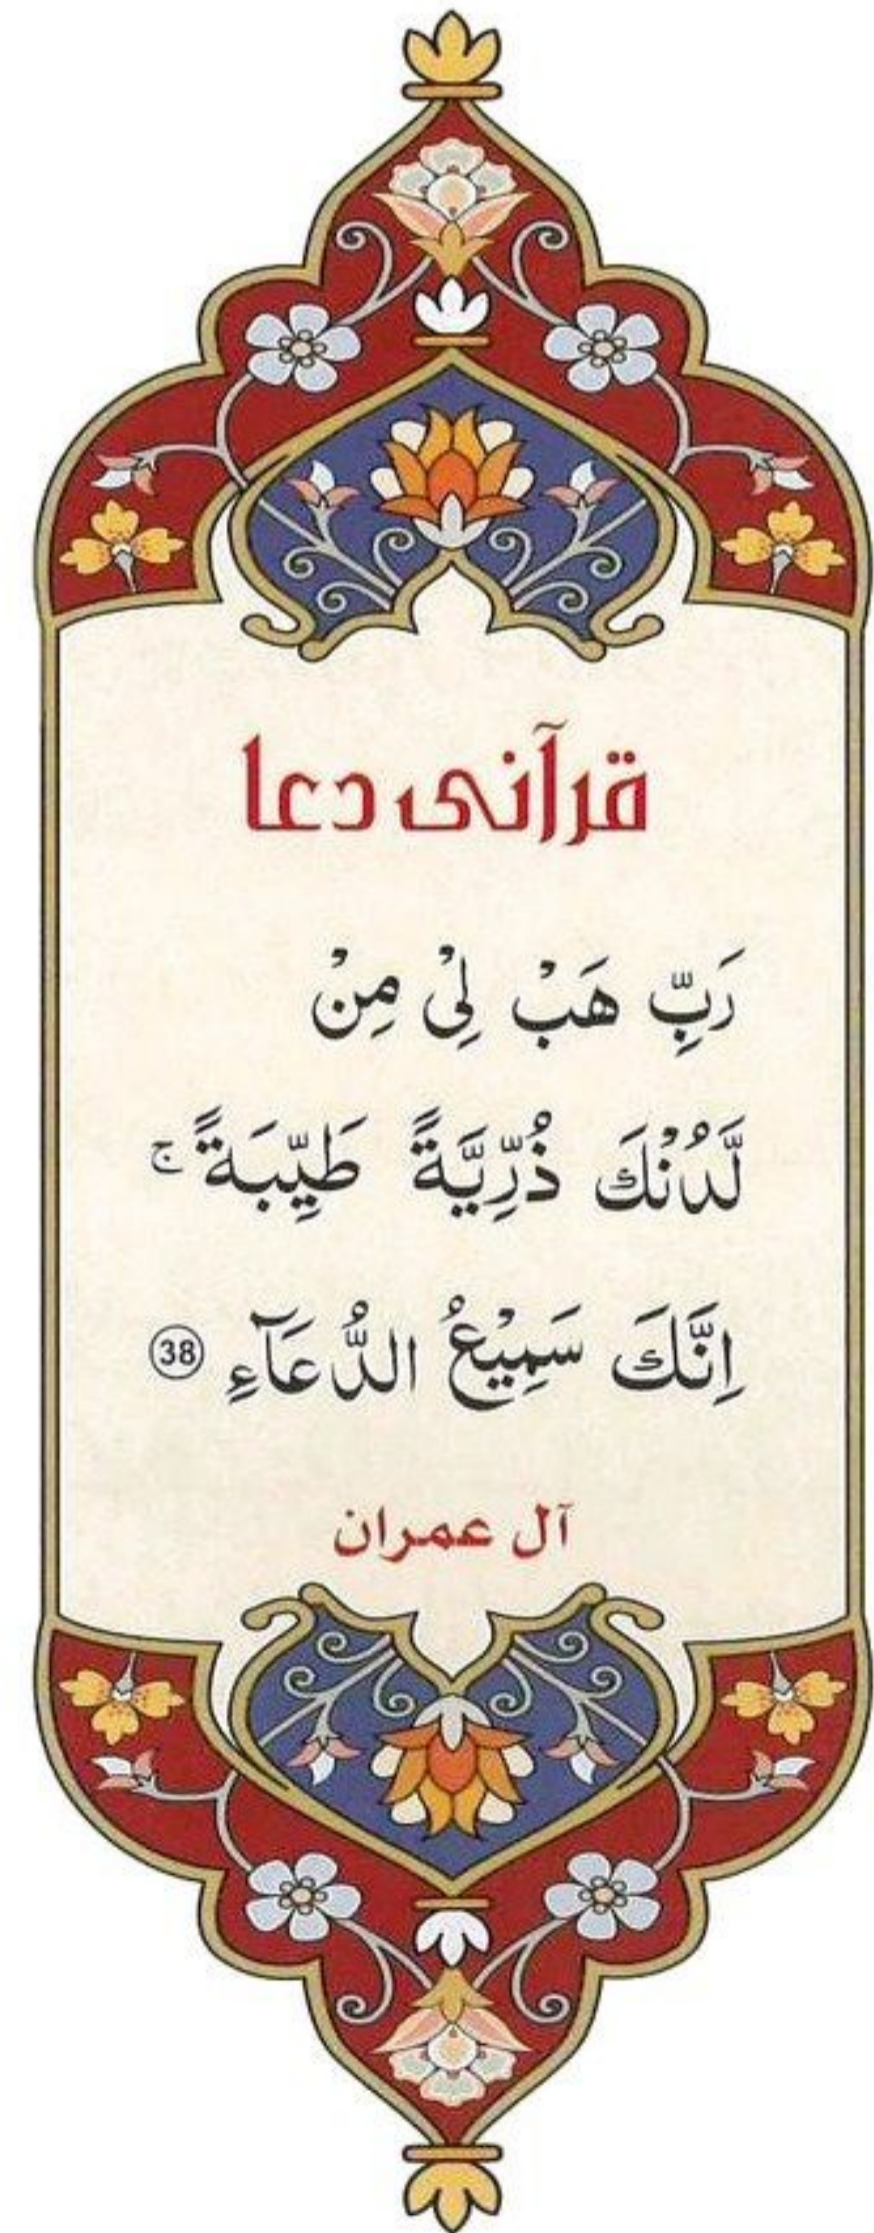 قرآنی دعا
رَبِّ هَبْ لِیْ مِنْ
لَّدُنْكَ ذُرِّيَّةً طَيِّبَةً ۚ
اِنَّكَ سَمِيْعُ الدُّعَآءِ 38
آل عمران